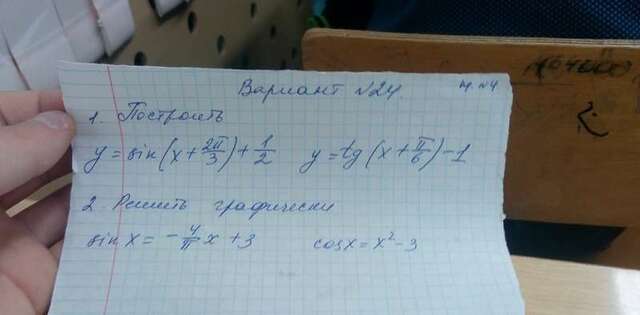 Вариант №24. пр. №4
1. Построить
y = sin(x + 2π/3) + 1/2 y = tg(x + π/6) - 1
2. Решить графически
sin x = -4/π x + 3 cos x = x² - 3